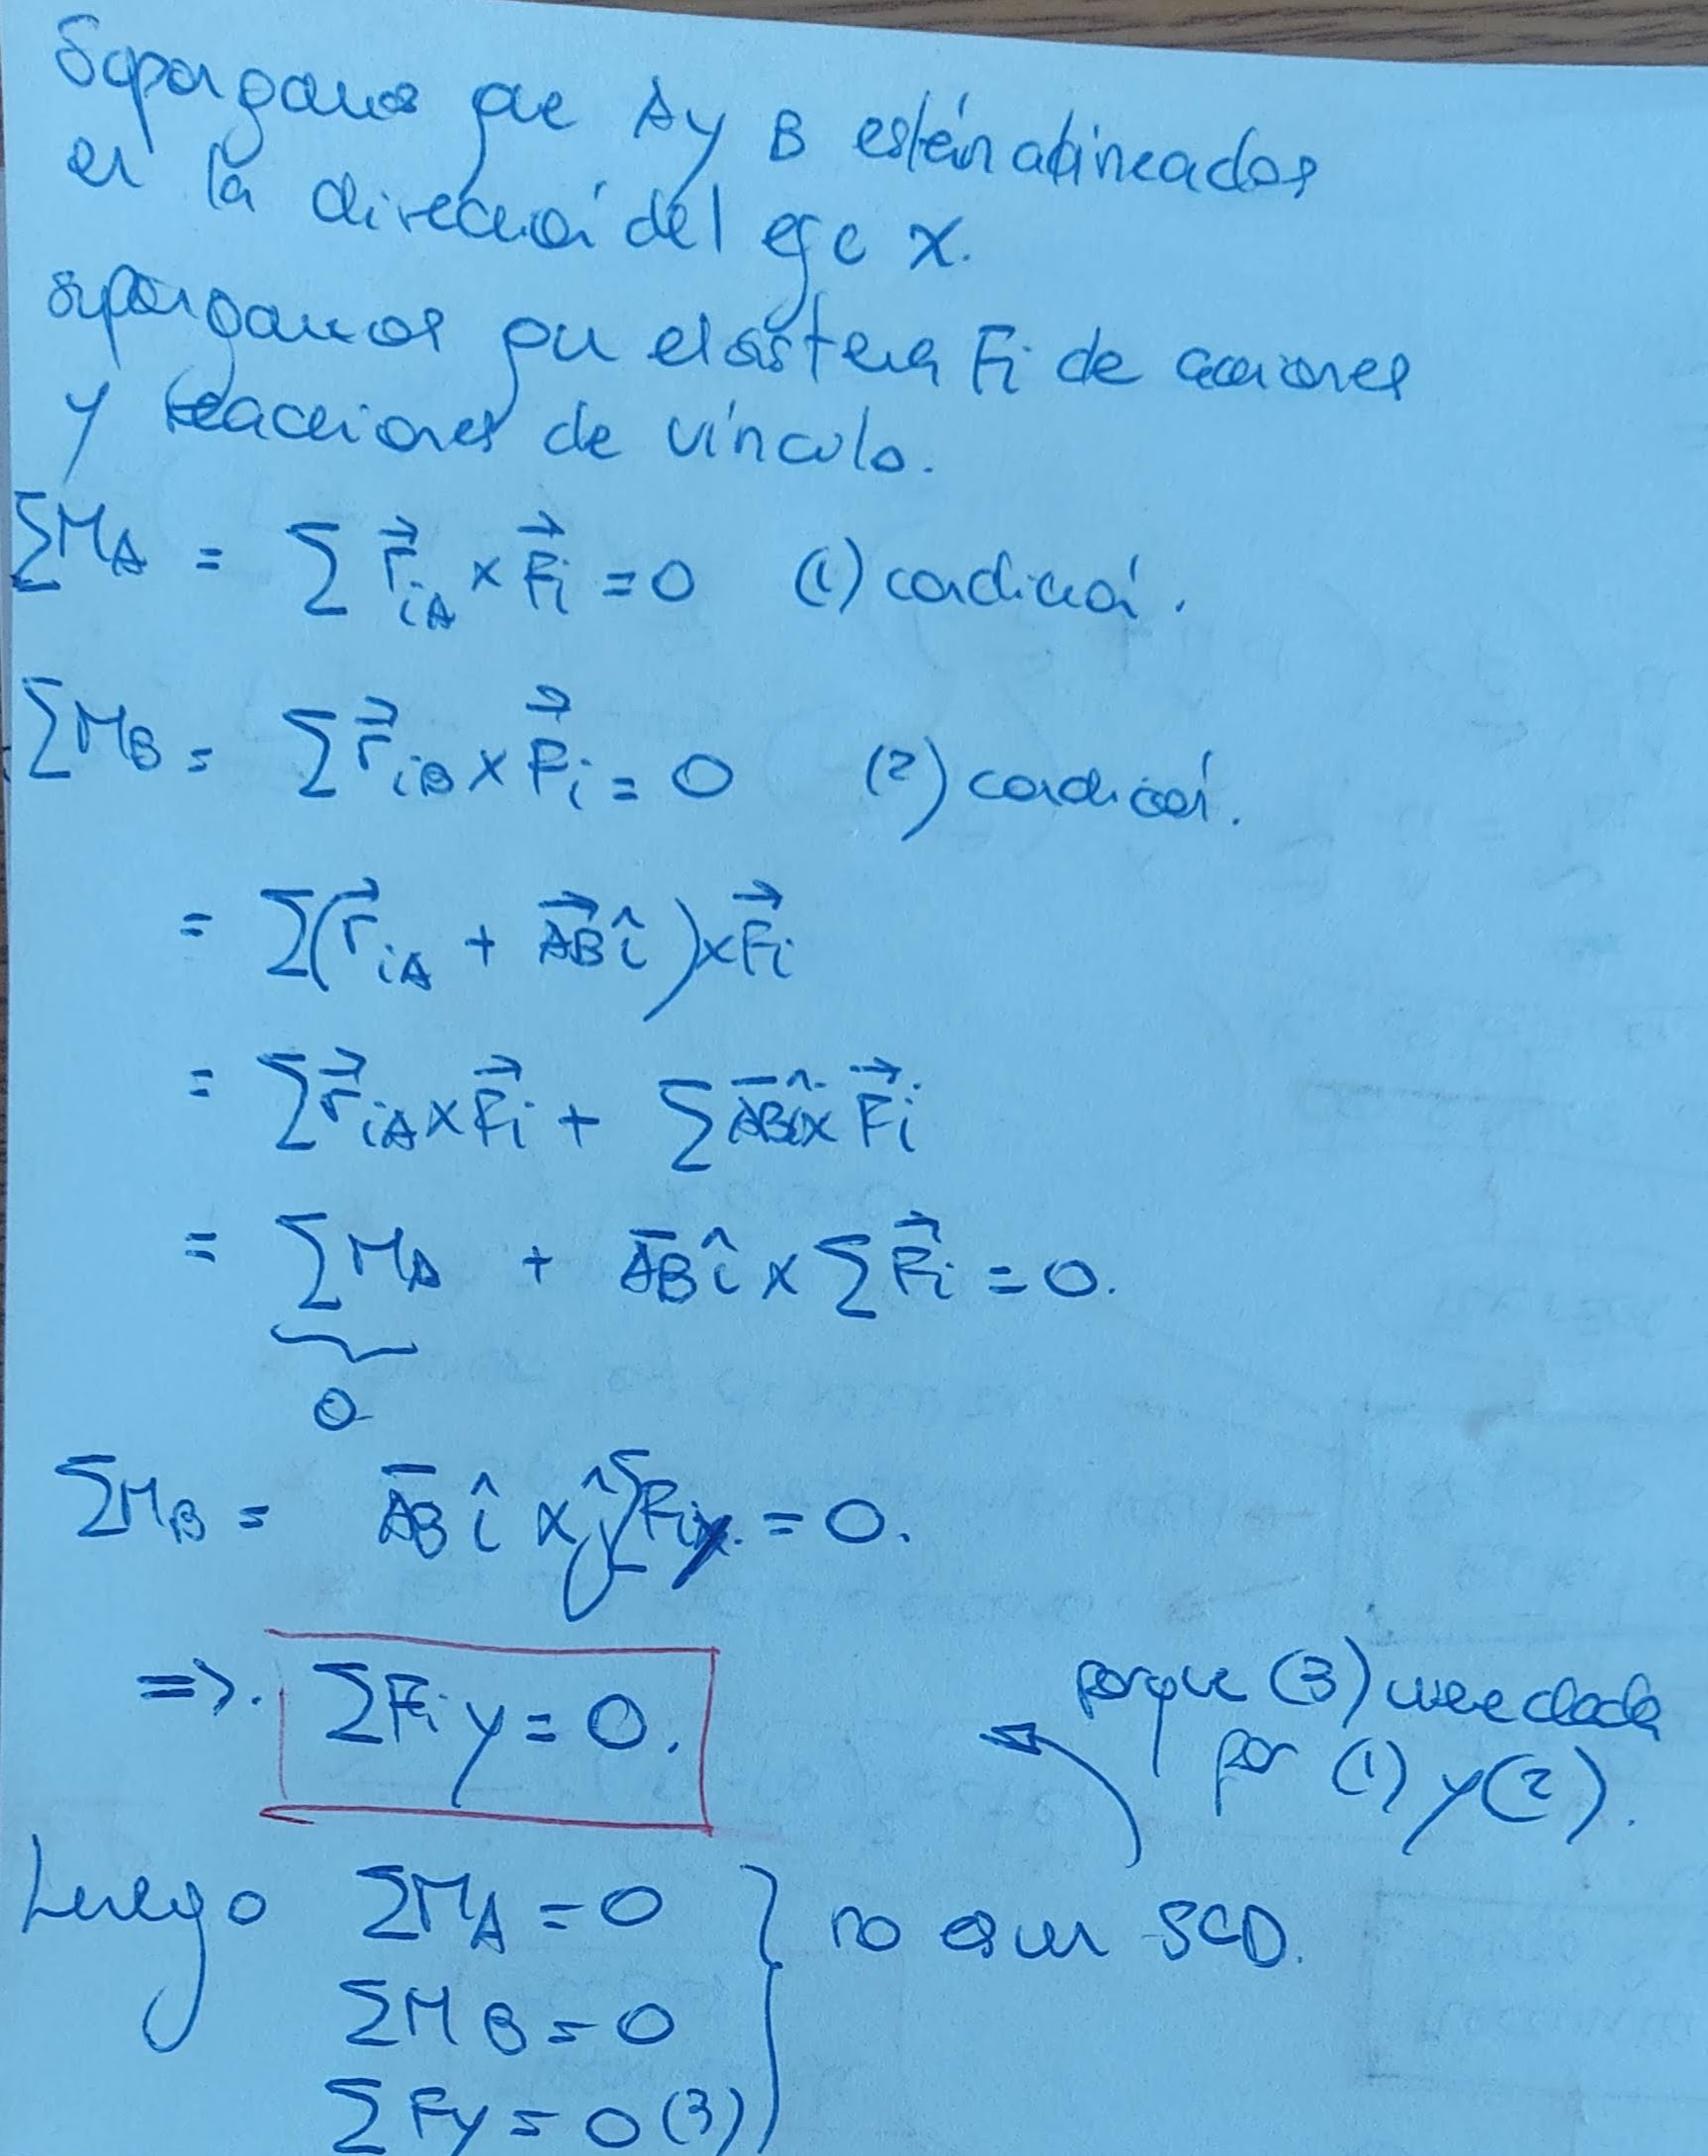 Supongamos que A y B estén alineados
en la dirección del eje X.
supongamos que el sistema Fi de acciones
y reacciones de vínculo.
∑M_A = ∑ r⃗_iA × F⃗i = 0 (1) condición.
∑M_B = ∑ r⃗_iB × F⃗i = 0 (2) condición.
= ∑(r⃗_iA + A⃗B î) × F⃗i
= ∑ r⃗_iA × F⃗i + ∑ A̅B̅ î × F⃗i
= ∑M_A + A̅B̅ î × ∑F⃗i = 0.
0
∑M_B = A̅B̅ î × ĵ ∑Fiy = 0.
=>. ∑Fiy = 0.
porque (3) viene dada
por (1) y (2).
Luego ∑M_A = 0
no es un SCD.
∑M_B = 0
∑Fy = 0 (3)